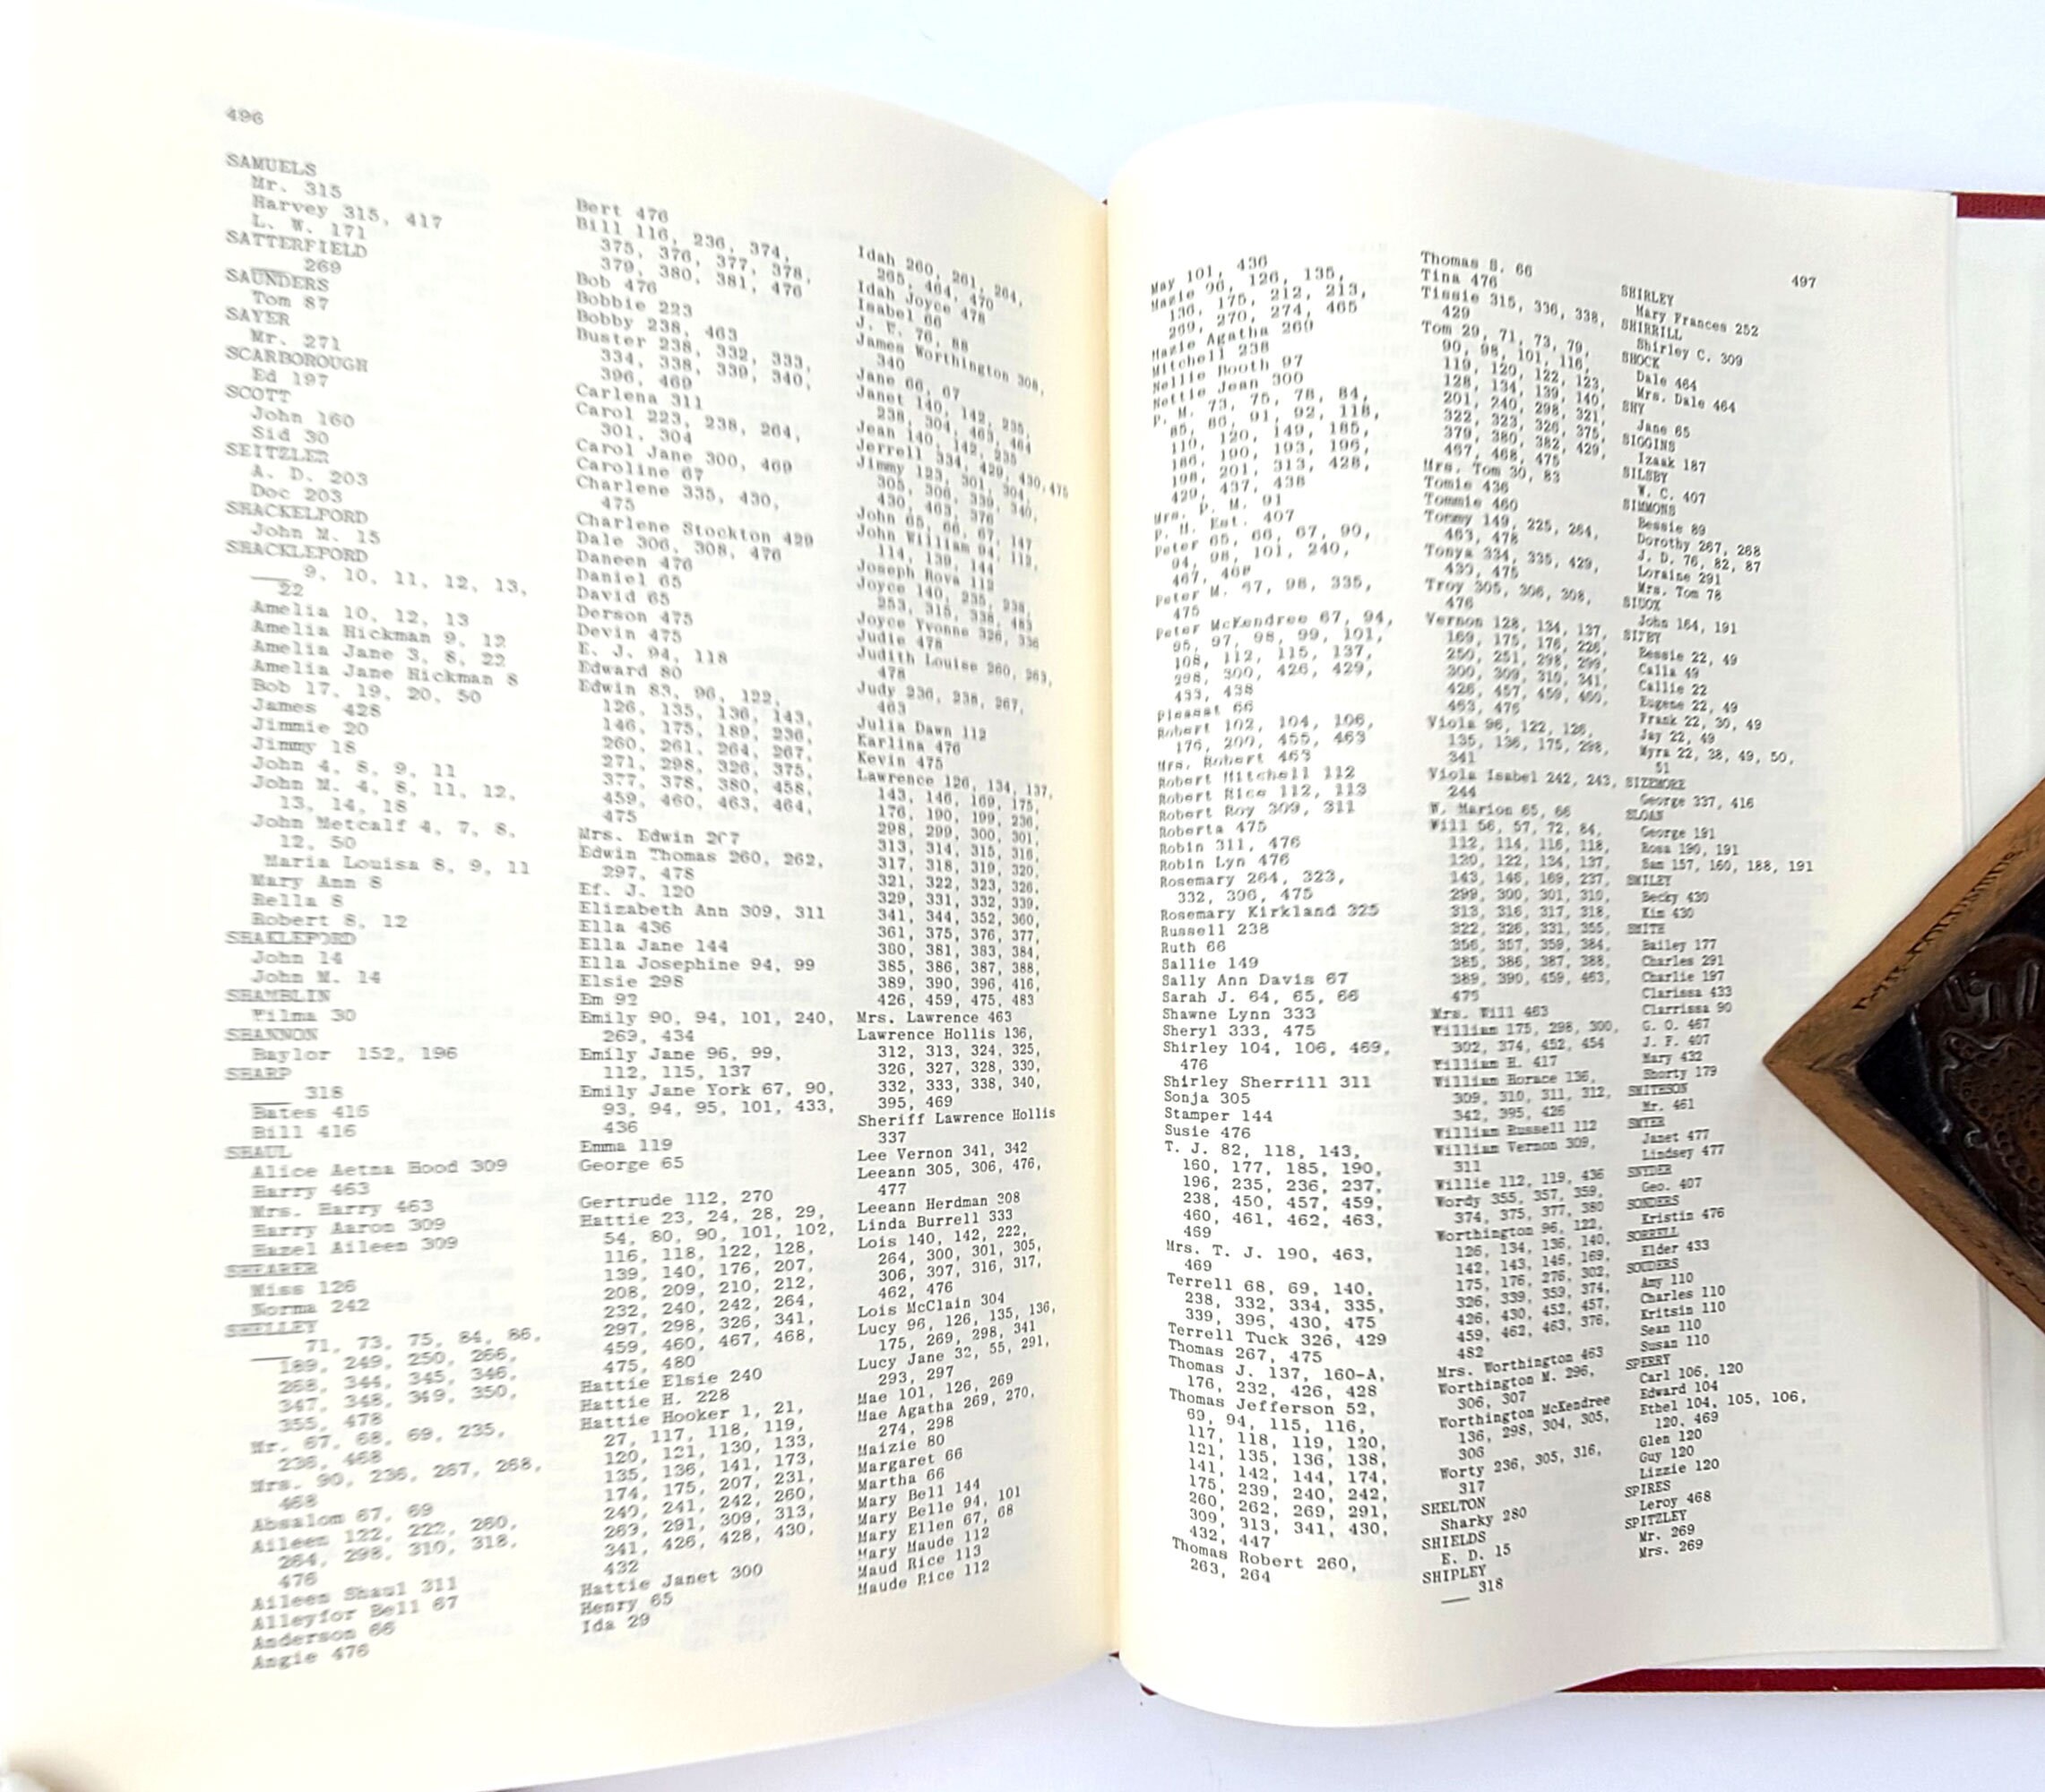 496
SAMUELS
Mr. 315
Harvey 315, 417
L. W. 171
SATTERFIELD
269
SAUNDERS
Tom 87
SAYER
Mr. 271
SCARBOROUGH
Ed 197
SCOTT
John 160
Sid 30
SEITZLER
A. D. 203
Doc 203
SHACKELFORD
John M. 15
SHACKLEFORD
___ 9, 10, 11, 12, 13,
22
Amelia 10, 12, 13
Amelia Hickman 9, 12
Amelia Jane 3, 8, 22
Amelia Jane Hickman 8
Bob 17, 19, 20, 50
James 428
Jimmie 20
Jimmy 18
John 4, 8, 9, 11
John M. 4, 8, 11, 12,
13, 14, 18
John Metcalf 4, 7, 8,
12, 50
Maria Louisa 8, 9, 11
Mary Ann 8
Rella 8
Robert 8, 12
SHAKLEFORD
John 14
John M. 14
SHAMBLIN
Wilma 30
SHANNON
Baylor 152, 196
SHARP
___ 318
Bates 416
Bill 416
SHAUL
Alice Aetna Hood 309
Harry 463
Mrs. Harry 463
Harry Aaron 309
Hazel Aileen 309
SHEARER
Miss 126
Norma 242
SHELLEY
___ 71, 73, 75, 84, 86,
189, 249, 250, 266,
268, 344, 345, 346,
347, 348, 349, 350,
355, 478
Mr. 67, 68, 69, 235,
236, 468
Mrs. 90, 236, 267, 268,
468
Absalom 67, 69
Aileen 122, 222, 260,
264, 298, 310, 318,
476
Aileen Shaul 311
Alleyfor Bell 67
Anderson 66
Angie 476
Bert 476
Bill 116, 236, 374,
375, 376, 377, 378,
379, 380, 381, 476
Bob 476
Bobbie 223
Bobby 238, 463
Buster 238, 332, 333,
334, 338, 339, 340,
396, 469
Carlena 311
Carol 223, 238, 264,
301, 304
Carol Jane 300, 469
Caroline 67
Charlene 335, 430,
475
Charlene Stockton 429
Dale 306, 308, 476
Daneen 476
Daniel 65
David 65
Derson 475
Devin 475
E. J. 94, 118
Edward 80
Edwin 83, 96, 122,
126, 135, 136, 143,
146, 175, 189, 236,
260, 261, 264, 267,
271, 298, 326, 375,
377, 378, 380, 458,
459, 460, 463, 464,
475
Mrs. Edwin 267
Edwin Thomas 260, 262,
297, 478
Ef. J. 120
Elizabeth Ann 309, 311
Ella 436
Ella Jane 144
Ella Josephine 94, 99
Elsie 298
Em 92
Emily 90, 94, 101, 240,
269, 434
Emily Jane 96, 99,
112, 115, 137
Emily Jane York 67, 90,
93, 94, 95, 101, 433,
436
Emma 119
George 65
Gertrude 112, 270
Hattie 23, 24, 28, 29,
54, 80, 90, 101, 102,
116, 118, 122, 128,
139, 140, 176, 207,
208, 209, 210, 212,
232, 240, 242, 264,
297, 298, 326, 341,
459, 460, 467, 468,
475, 480
Hattie Elsie 240
Hattie H. 228
Hattie Hooker 1, 21,
27, 117, 118, 119,
120, 121, 130, 133,
135, 136, 141, 173,
174, 175, 207, 231,
240, 241, 242, 260,
269, 291, 309, 313,
341, 426, 428, 430,
432
Hattie Janet 300
Henry 65
Ida 29
Idah 260, 261, 264,
265, 464, 470
Idah Joyce 478
Isabel 66
J. E. 76, 88
James Worthington 308,
340
Jane 66, 67
Janet 140, 142, 235,
238, 304, 463, 464
Jean 140, 142, 235
Jerrell 334, 429, 430, 475
Jimmy 123, 301, 304,
305, 306, 339, 340,
430, 463, 376
John 65, 66, 67, 147
John William 94, 112,
114, 139, 144
Joseph Rova 112
Joyce 140, 235, 238,
253, 315, 338, 463
Joyce Yvonne 326, 336
Judie 478
Judith Louise 260, 263,
478
Judy 236, 238, 267,
463
Julia Dawn 112
Karlina 476
Kevin 475
Lawrence 126, 134, 137,
143, 146, 169, 175,
176, 190, 199, 236,
298, 299, 300, 301,
313, 314, 315, 316,
317, 318, 319, 320,
321, 322, 323, 326,
329, 331, 332, 339,
341, 344, 352, 360,
361, 375, 376, 377,
380, 381, 383, 384,
385, 386, 387, 388,
389, 390, 396, 416,
426, 459, 475, 483
Mrs. Lawrence 463
Lawrence Hollis 136,
312, 313, 324, 325,
326, 327, 328, 330,
332, 333, 338, 340,
395, 469
Sheriff Lawrence Hollis
337
Lee Vernon 341, 342
Leeann 305, 306, 476,
477
Leeann Herdman 308
Linda Burrell 333
Lois 140, 142, 222,
264, 300, 301, 305,
306, 307, 316, 317,
462, 476
Lois McClain 304
Lucy 96, 126, 135, 136,
175, 269, 298, 341
Lucy Jane 32, 55, 291,
293, 297
Mae 101, 126, 269
Mae Agatha 269, 270,
274, 298
Maizie 80
Margaret 66
Martha 66
Mary Bell 144
Mary Belle 94, 101
Mary Ellen 67, 68
Mary Maude 112
Maud Rice 113
Maude Rice 112
497
May 101, 436
Mazie 96, 126, 135,
136, 175, 212, 213,
269, 270, 274, 465
Mazie Agatha 269
Mitchell 238
Nellie Booth 97
Nettie Jean 300
P. M. 73, 75, 78, 84,
85, 86, 91, 92, 118,
119, 120, 149, 185,
186, 190, 193, 196,
198, 201, 313, 428,
429, 437, 438
Mrs. P. M. 91
P. M. Est. 407
Peter 65, 66, 67, 90,
94, 98, 101, 240,
467, 468
Peter M. 67, 98, 335,
475
Peter McKendree 67, 94,
95, 97, 98, 99, 101,
108, 112, 115, 137,
298, 300, 426, 429,
433, 438
Pleasat 66
Robert 102, 104, 106,
176, 200, 455, 463
Mrs. Robert 463
Robert Mitchell 112
Robert Rice 112, 113
Robert Roy 309, 311
Roberta 475
Robin 311, 476
Robin Lyn 476
Rosemary 264, 323,
332, 396, 475
Rosemary Kirkland 325
Russell 238
Ruth 66
Sallie 149
Sally Ann Davis 67
Sarah J. 64, 65, 66
Shawne Lynn 333
Sheryl 333, 475
Shirley 104, 106, 469,
476
Shirley Sherrill 311
Sonja 305
Stamper 144
Susie 476
T. J. 82, 118, 143,
160, 177, 185, 190,
196, 235, 236, 237,
238, 450, 457, 459,
460, 461, 462, 463,
469
Mrs. T. J. 190, 463,
469
Terrell 68, 69, 140,
238, 332, 334, 335,
339, 396, 430, 475
Terrell Tuck 326, 429
Thomas 267, 475
Thomas J. 137, 160-A,
176, 232, 426, 428
Thomas Jefferson 52,
69, 94, 115, 116,
117, 118, 119, 120,
121, 135, 136, 138,
141, 142, 144, 174,
175, 239, 240, 242,
260, 262, 269, 291,
309, 313, 341, 430,
432, 447
Thomas Robert 260,
263, 264
Thomas S. 66
Tina 476
Tissie 315, 336, 338,
429
Tom 29, 71, 73, 79,
90, 98, 101, 116,
119, 120, 122, 123,
128, 134, 139, 140,
201, 240, 298, 321,
322, 323, 326, 375,
379, 380, 382, 429,
467, 468, 475
Mrs. Tom 30, 83
Tomie 436
Tommie 460
Tommy 149, 225, 264,
463, 478
Tonya 334, 335, 429,
430, 475
Troy 305, 306, 308,
476
Vernon 128, 134, 137,
169, 175, 176, 226,
250, 251, 298, 299,
300, 309, 310, 341,
426, 457, 459, 460,
463, 476
Viola 96, 122, 126,
135, 136, 175, 298,
341
Viola Isabel 242, 243,
244
W. Marion 65, 66
Will 56, 57, 72, 84,
112, 114, 116, 118,
120, 122, 134, 137,
143, 146, 169, 237,
299, 300, 301, 310,
313, 316, 317, 318,
322, 326, 331, 355,
356, 357, 359, 384,
385, 386, 387, 388,
389, 390, 459, 463,
475
Mrs. Will 463
William 175, 298, 300,
302, 374, 452, 454
William H. 417
William Horace 136,
309, 310, 311, 312,
342, 395, 426
William Russell 112
William Vernon 309,
311
Willie 112, 119, 436
Wordy 355, 357, 359,
374, 375, 377, 380
Worthington 96, 122,
126, 134, 136, 140,
142, 143, 146, 169,
175, 176, 276, 302,
326, 339, 359, 374,
426, 430, 452, 457,
459, 462, 463, 376,
482
Mrs. Worthington 463
Worthington M. 296,
306, 307
Worthington McKendree
136, 298, 304, 305,
306
Worty 236, 305, 316,
317
SHELTON
Sharky 280
SHIELDS
E. D. 15
SHIPLEY
___ 318
SHIRLEY
Mary Frances 252
SHIRRILL
Shirley C. 309
SHOCK
Dale 464
Mrs. Dale 464
SHY
Jane 65
SIGGINS
Izaak 187
SILSBY
W. C. 407
SIMMONS
Bessie 89
Dorothy 267, 268
J. D. 76, 82, 87
Loraine 291
Mrs. Tom 78
SIUOX
John 164, 191
SITBY
Bessie 22, 49
Calla 49
Callie 22
Eugene 22, 49
Frank 22, 30, 49
Jay 22, 49
Myra 22, 38, 49, 50,
51
SIZEMORE
George 337, 416
SLOAN
George 191
Rosa 190, 191
Sam 157, 160, 188, 191
SMILEY
Becky 430
Kim 430
SMITH
Bailey 177
Charles 291
Charlie 197
Clarissa 433
Clarrissa 90
G. O. 467
J. F. 407
Mary 432
Shorty 179
SMITHSON
Mr. 461
SMYER
Janet 477
Lindsey 477
SNYDER
Geo. 407
SONDERS
Kristin 476
SORRELL
Elder 433
SOUDERS
Amy 110
Charles 110
Kritsin 110
Sean 110
Susan 110
SPERRY
Carl 106, 120
Edward 104
Ethel 104, 105, 106,
120, 469
Glen 120
Guy 120
Lizzie 120
SPIRES
Leroy 468
SPITZLEY
Mr. 269
Mrs. 269